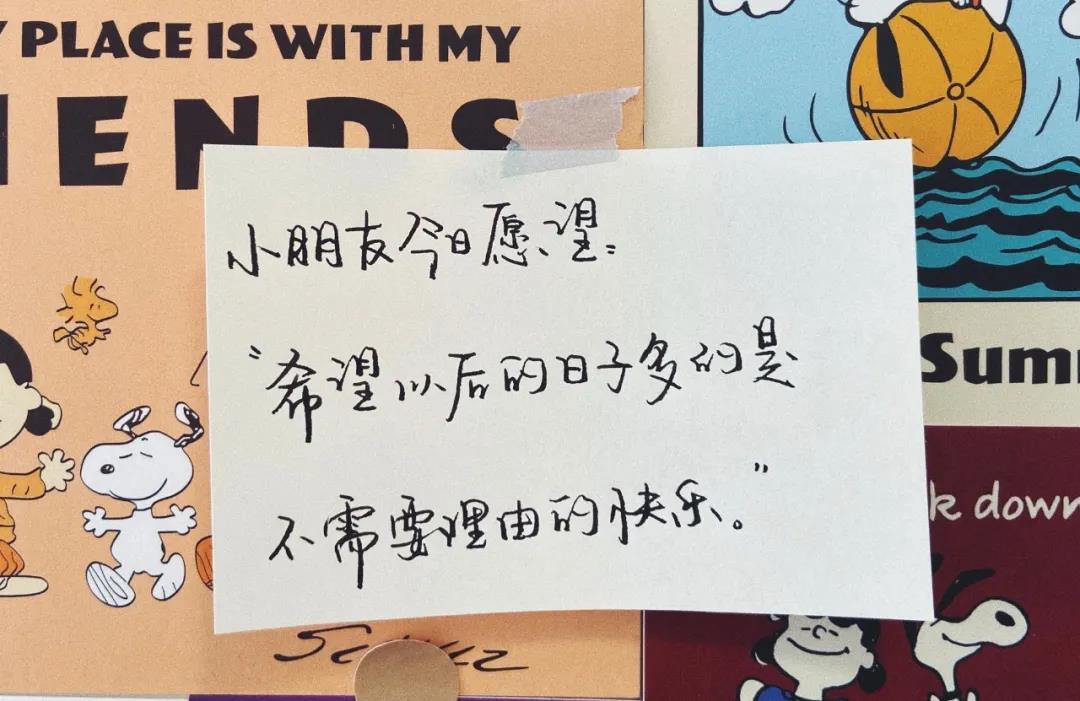 PLACE IS WITH MY
ENDS
小朋友今日愿望:
“希望以后的日子多的是
不需要理由的快乐。”
Summ
k down